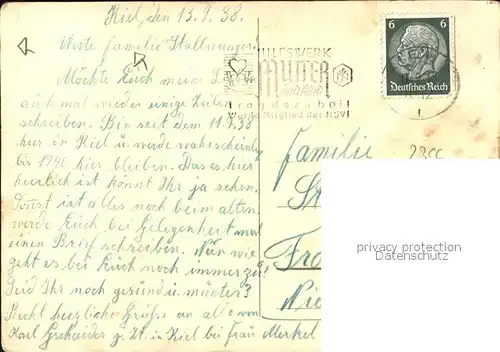 Kiel, den 13.9.38.
Werte Familie Stallwanger!
Möchte Euch meine Lieben
auch mal wieder einige Zeilen
schreiben. Bin seit dem 11.9.38
hier in Kiel u. werde wahrscheinlig
bis 1940 hier bleiben. Das es hier
herzlich ist könnt Ihr ja sehn.
Sonst ist alles noch beim alten
werde Euch bei Gelegenheit mal
einen Brief schreiben. Nun wie
geht es bei Euch noch immer zu?
Seid Ihr noch gesund u. munter?
Recht herzlicher Grüße an alle von
Karl z. Zt. in Kiel bei Frau Merkel
HILFSWERK
MUTTER
und Kind
Trag dazu bei!
Werde Mitglied der NSV!
6 6
Deutsches Reich
Familie
privacy protection
Datenschutz